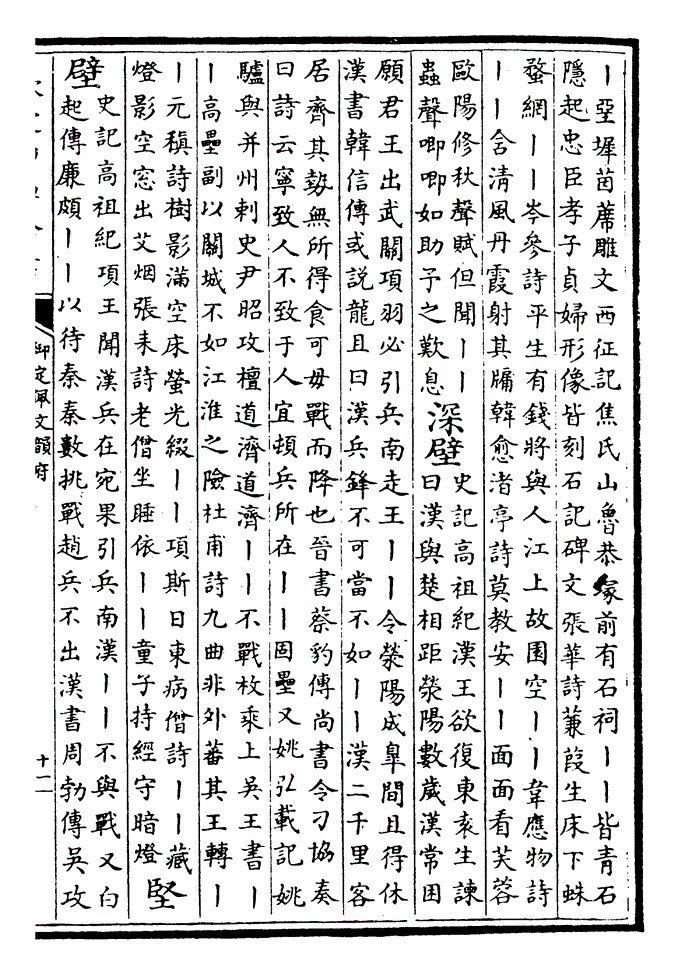 丨堊墀茵蓆雕文西征記焦氏山魯恭冢前有石祠丨丨皆青石
隱起忠臣孝子貞婦形像皆刻石記碑文張華詩蒹葭生床下蛛
蝥網丨丨岑參詩平生有錢將與人江上故園空丨丨韋應物詩
丨丨含清風丹霞射其牖韓愈渚亭詩莫教安丨丨面面看芙蓉
歐陽修秋聲賦但聞丨丨
蟲聲唧唧如助予之歎息
深壁
史記高祖紀漢王欲復東袁生諫
曰漢與楚相距滎陽數歲漢常困
願君王出武關項羽必引兵南走王丨丨令滎陽成臯間且得休
漢書韓信傳或說龍且曰漢兵鋒不可當不如丨丨漢二千里客
居齊其勢無所得食可毋戰而降也晉書蔡豹傳尚書令刁協奏
曰詩云寧致人不致于人宜頓兵所在丨丨固壘又姚弘載記姚
驢與并州刺史尹昭攻檀道濟道濟丨丨不戰枚乘上吳王書丨
丨高壘副以關城不如江淮之險杜甫詩九曲非外蕃其王轉丨
丨元稹詩樹影滿空床螢光綴丨丨項斯日東病僧詩丨丨藏
燈影空窓出艾烟張耒詩老僧坐睡依丨丨童子持經守暗燈
堅
壁
史記高祖紀項王聞漢兵在宛果引兵南漢丨丨不與戰又白
起傳廉頗丨丨以待秦秦數挑戰趙兵不出漢書周勃傳吳攻
御定佩文韻府
十一